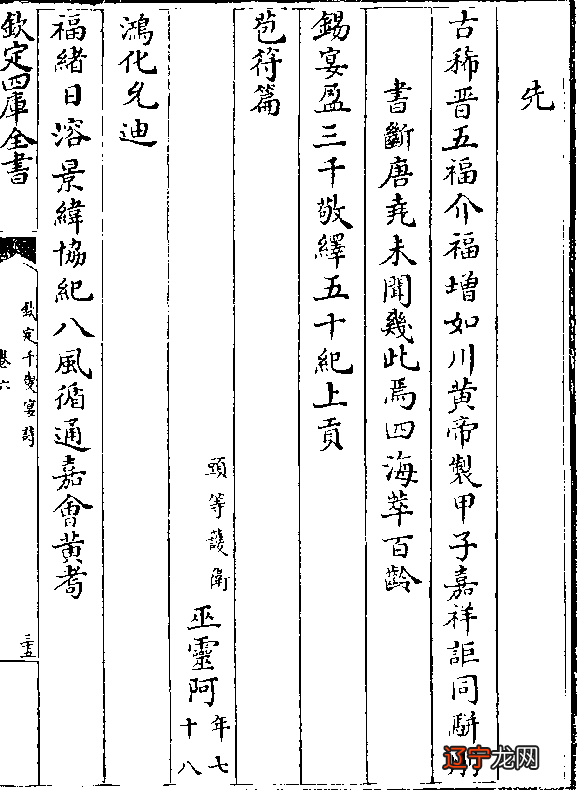 先
古稀晋五福介福增如川黄帝製甲子嘉祥詎同駢
書斷唐堯未聞幾此焉四海萃百齡
錫宴盈三千敬繹五十紀上貢
苞符篇
頭等護衛 巫靈阿 年七十八
鴻化允迪
福緒日溶景緯協紀八風循通嘉會黄耇
欽定四庫全書
欽定千叟宴詩
卷六
三五
辽宁龙网